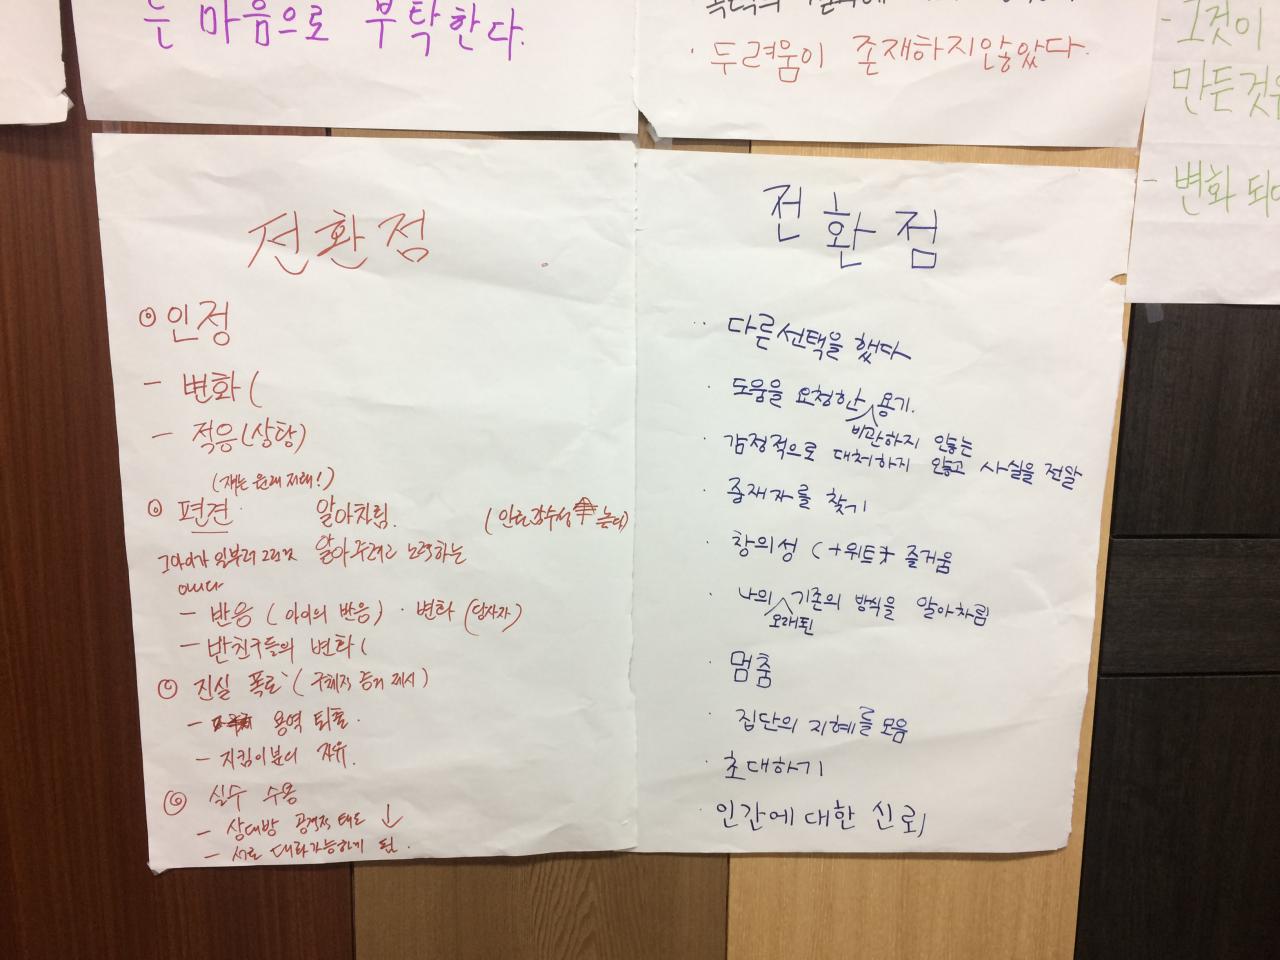 는 마음으로 부탁한다.
· 두려움이 존재하지않았다.
- 그것이
만든것을
- 변화 되어
전환점
⊙ 인정
- 변화 (
- 적응 (상황)
(쟤는 원래 저래!)
⊙ 편견 알아차림. (인권감수성 높다)
그아이가 일부러 그런것 알아주려고 노력하는
아니다
- 반응 (아이의 반응) · 변화 (당사자)
- 반친구들의 변화 (
⊙ 진실 폭로 (구체적 증거 제시)
- 용역 퇴출.
- 지킴이분의 자유.
⊙ 실수 수용
- 상대방 공격적 태도 ↓
- 서로 대화가능하게 됨.
전환점
· 다른선택을 했다
· 도움을 요청한 용기.
비관하지 않는
· 감정적으로 대처하지 않고 사실을 전달
· 중재자를 찾기
· 창의성 (+위트 즐거움
· 나의 기존의 방식을 알아차림
오래된
· 멈춤
· 집단의 지혜를 모음
· 초대하기
· 인간에 대한 신뢰